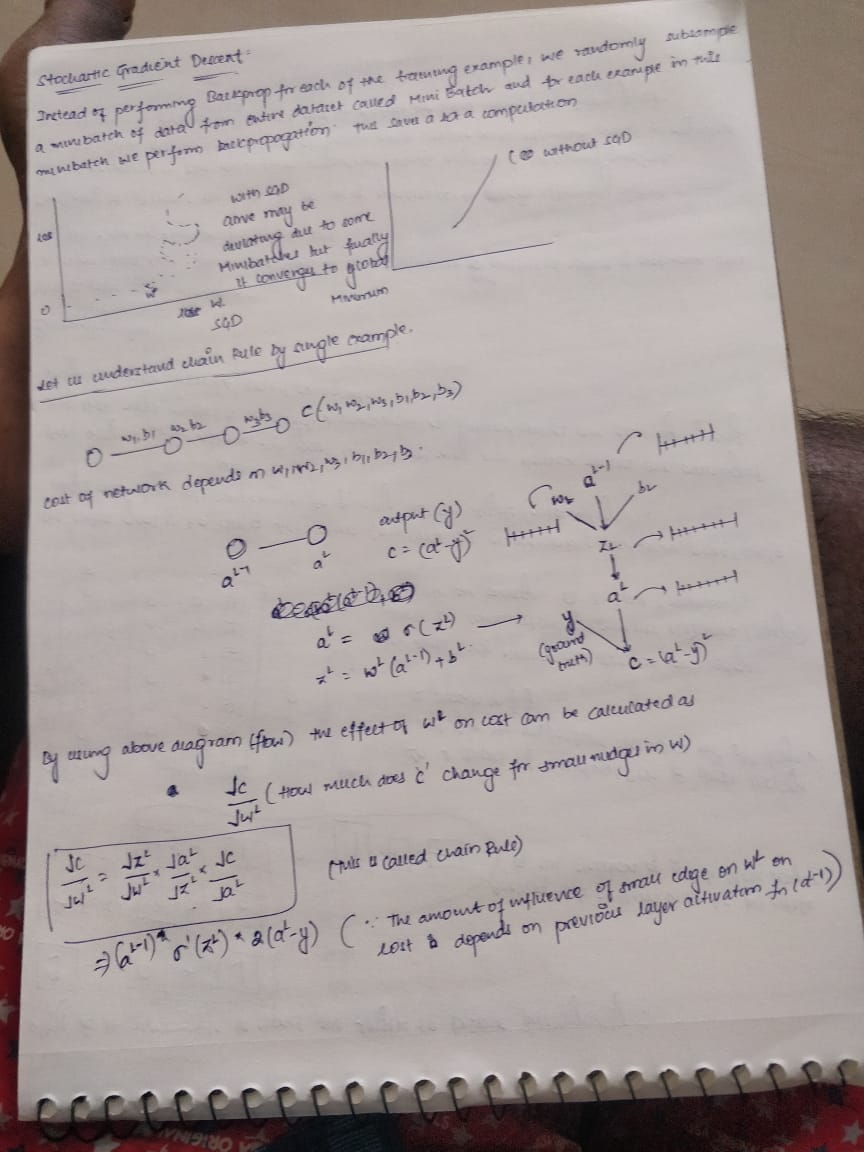 Stochastic Gradient Descent:
Instead of performing Backprop for each of the training example, we randomly subsample
a minibatch of data from entire dataset called Mini Batch and for each example in this
minibatch we perform backpropogation. this saves a lot a computation
with SGD
curve may be
deviating due to some
Minibatches but finally
it converges to global
Minimum
los
0
w
W.
SGD
without SGD
Let us understand chain Rule by single example.
w1, b1 w2 b2 w3 b3 C(w1, w2, w3, b1, b2, b3)
cost of network depends on w1, w2, w3, b1, b2, b3.
a^(L-1) a^L
output (y)
C = (a^L - y)^2
a^L = σ(z^L)
z^L = w^L (a^(L-1)) + b^L
a^(L-1)
wL bL
zL
a^L
y
(ground
truth)
C = (a^L - y)^2
By using above diagram (flow) the effect of w^L on cost can be calculated as
δC/δw^L (How much does 'c' change for small nudges in w)
δC/δw^L = δz^L/δw^L * δa^L/δz^L * δC/δa^L (this is called chain Rule)
⇒ (a^(L-1)) * σ'(z^L) * 2(a^L - y) (∵ The amount of influence of small edge on w^L on
cost depends on previous layer activation fn (a^(L-1)))
ORIGINAL